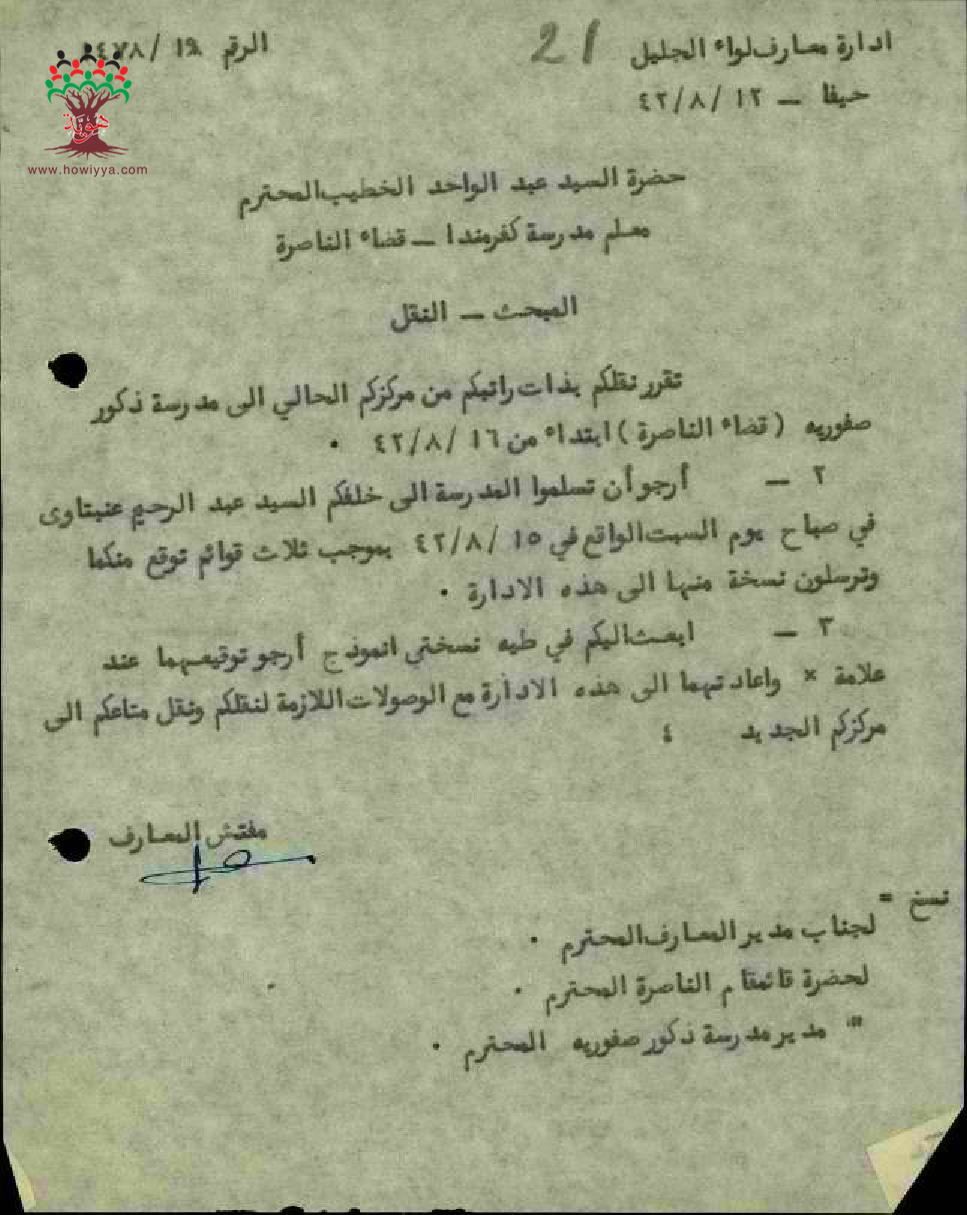 ادارة معارف لواء الجليل 21 الرقم
حيفا – ٤٢/٨/١٢
هوية
www.howiyya.com
حضرة السيد عبد الواحد الخطيب المحترم
معلم مدرسة كفرمندا – قضاء الناصرة
المبحث – النقل
تقرر نقلكم بذات راتبكم من مركزكم الحالي الى مدرسة ذكور
صفوريه (قضاء الناصرة) ابتداء من ٤٢/٨/١٦ .
٢ – أرجو أن تسلموا المدرسة الى خلفكم السيد عبد الرحيم عنبتاوى
في صباح يوم السبت الواقع في ٤٢/٨/١٥ بموجب ثلاث قوائم توقع منكما
وترسلون نسخة منها الى هذه الادارة .
٣ – ابعث اليكم في طيه نسختي انموذج أرجو توقيعهما عند
علامة × واعادتهما الى هذه الادارة مع الوصولات اللازمة لنقلكم ونقل متاعكم الى
مركزكم الجديد ٤
مفتش المعارف
نسخ =
لجناب مدير المعارف المحترم .
لحضرة قائمقام الناصرة المحترم .
" مدير مدرسة ذكور صفوريه المحترم .